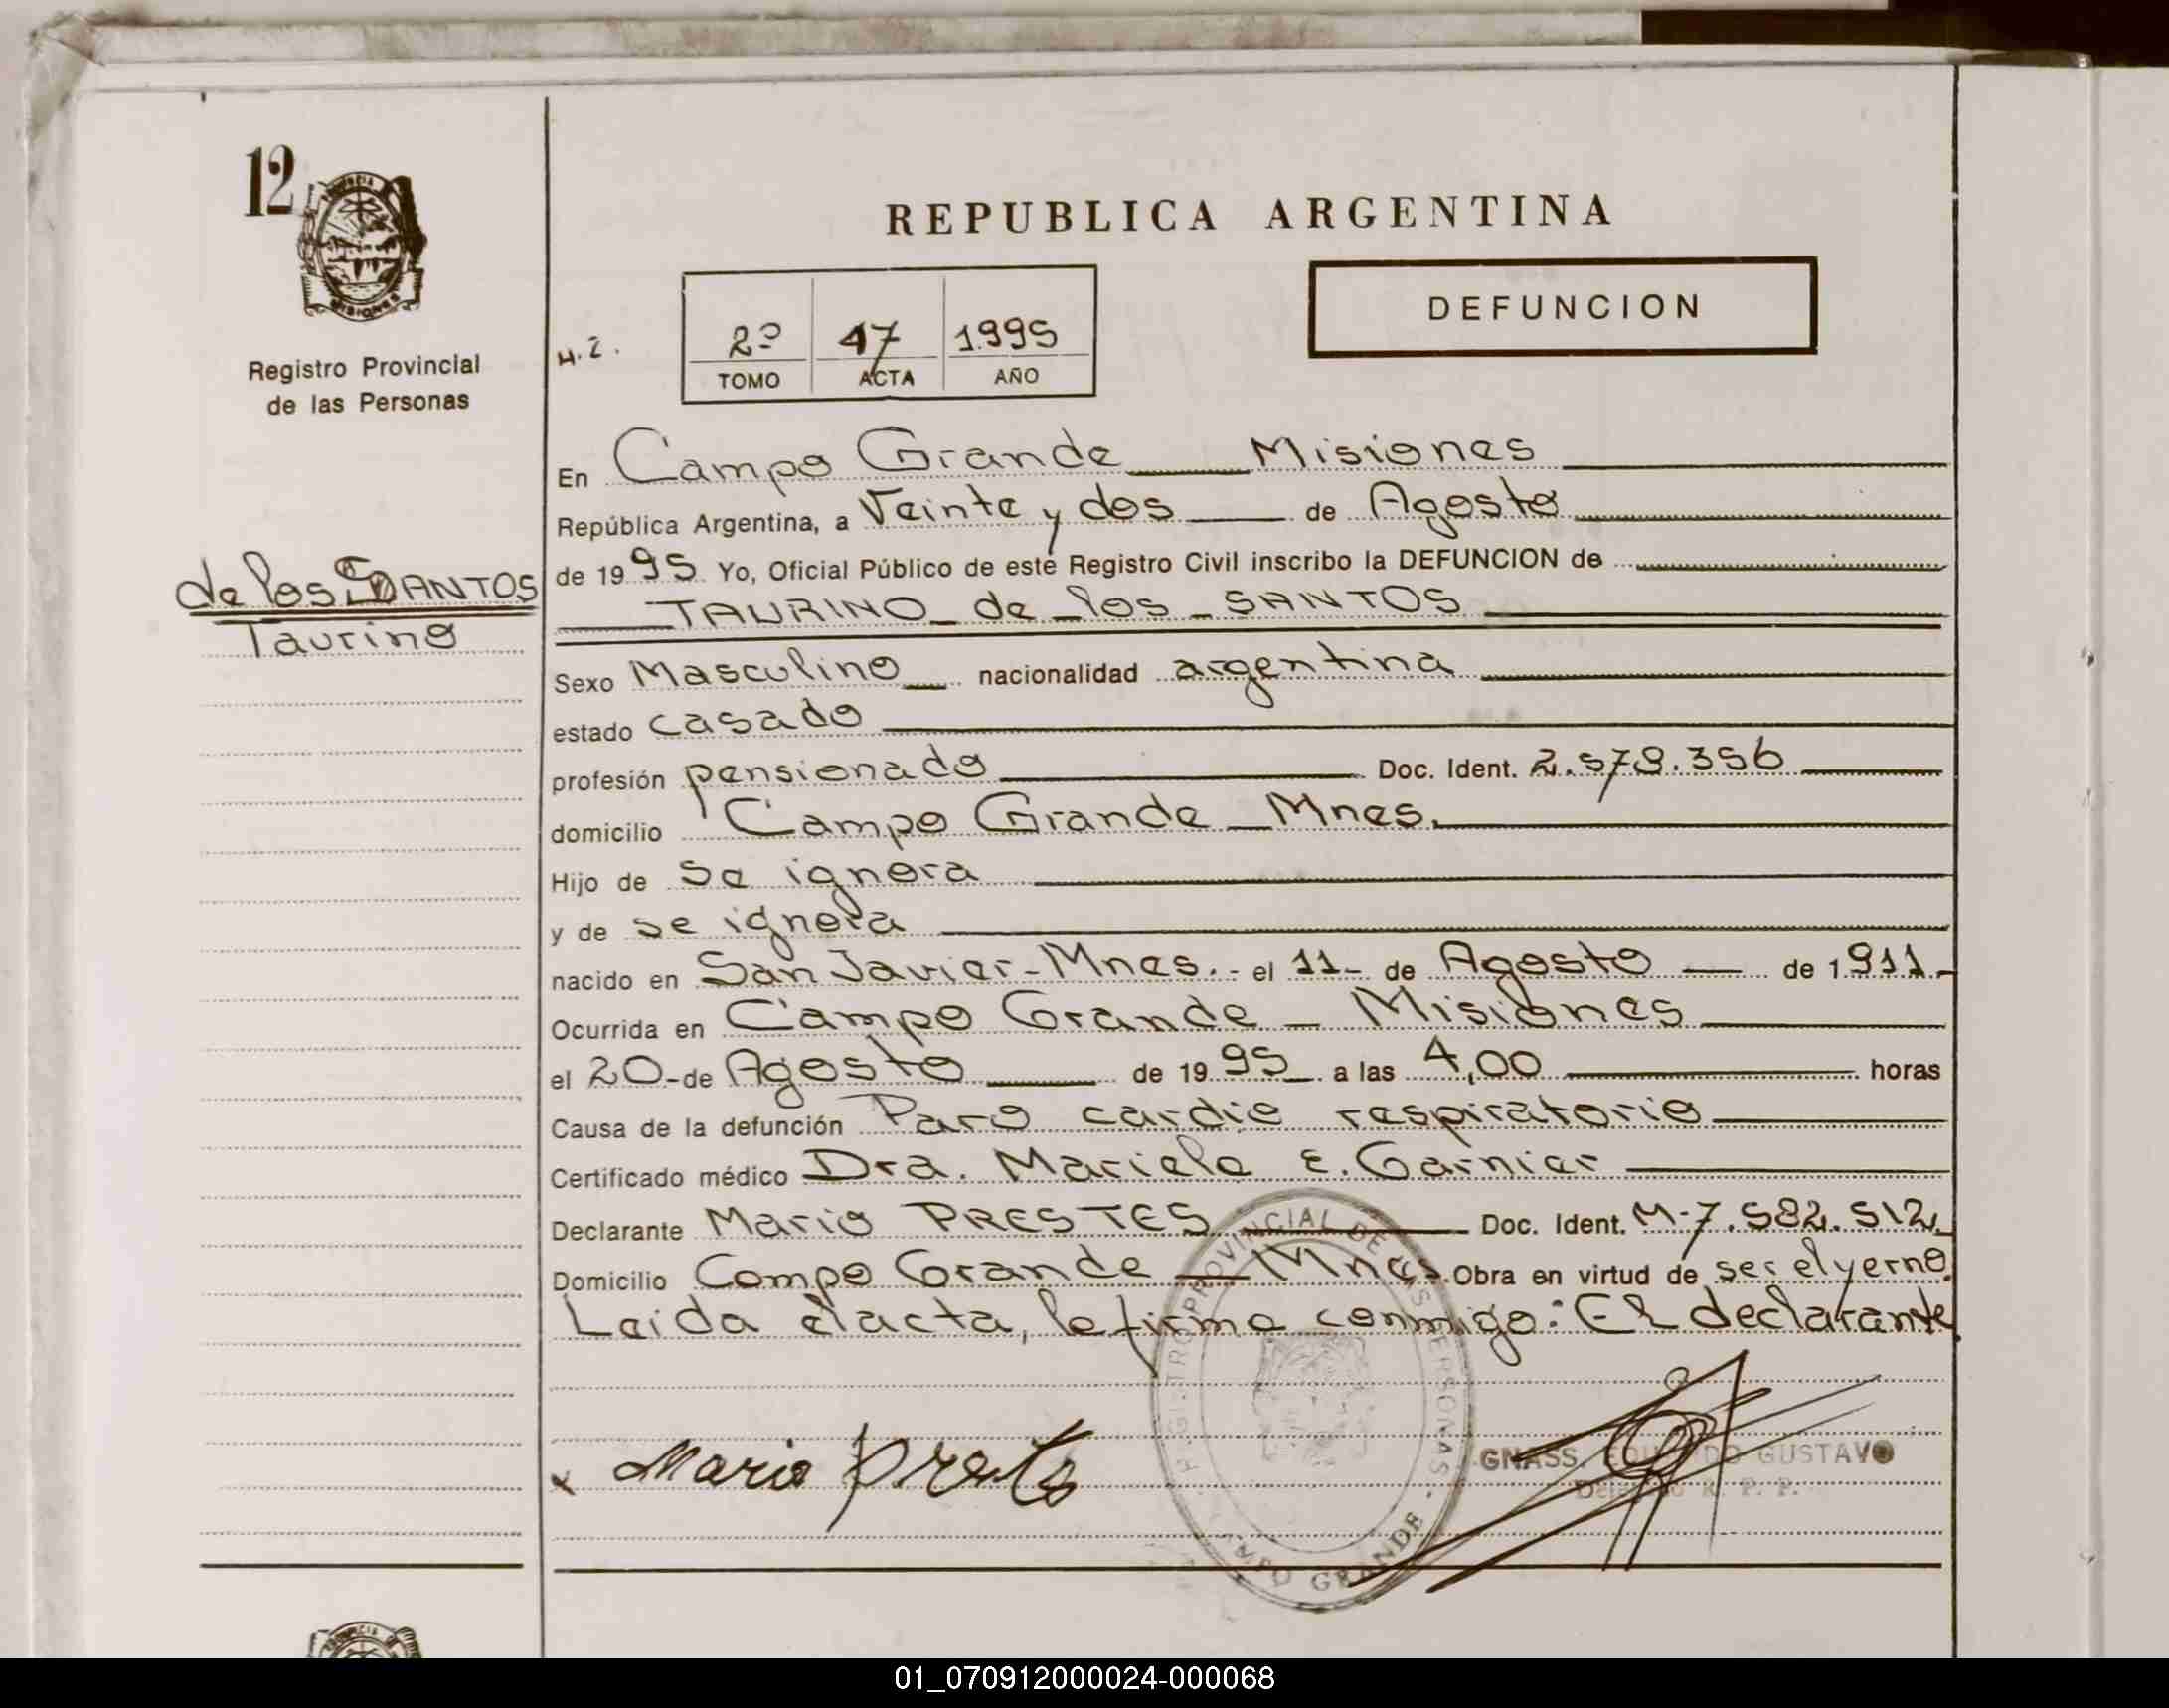 12
Registro Provincial
de las Personas
de los SANTOS
Taurino
REPUBLICA ARGENTINA
DEFUNCION
2º 47 1.995
TOMO ACTA AÑO
En Campo Grande Misiones
República Argentina, a Veinte y dos de Agosto
de 1995 Yo, Oficial Público de este Registro Civil inscribo la DEFUNCION de
TAURINO de los SANTOS
Sexo Masculino nacionalidad argentina
estado casado
profesión pensionado Doc. Ident. 2.579.356
domicilio Campo Grande - Mnes.
Hijo de se ignora
y de se ignora
nacido en San Javier - Mnes. - el 11 - de Agosto - de 1911.-
Ocurrida en Campo Grande - Misiones
el 20 - de Agosto de 1995 a las 4,00 horas
Causa de la defunción Paro cardio respiratorio
Certificado médico Dra. Mariela E. Garnier
Declarante Mario PRESTES Doc. Ident. M-7.582.512.
Domicilio Campo Grande - Mnes. Obra en virtud de ser el yerno.
Leida el acta, la firma conmigo: El declarante.
x Mario Prestes
REGISTRO PROVINCIAL DE LAS PERSONAS
CAMPO GRANDE
GNASS, EDUARDO GUSTAVO
Delegado R. P. P.
01_070912000024-000068